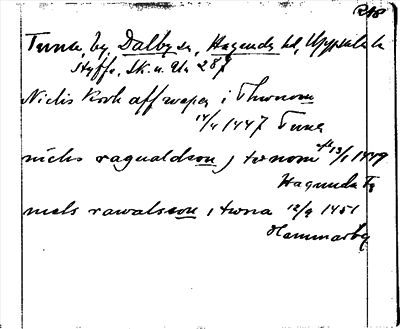 R48
Tuna, by, Dalby sn, Hagunda hd, Uppsala l.
Styffe, Sk. u. Un 287
Niclis Kork aff wapn i Thwnom
14/4 1447 Tuna
niclis ragualdson j twnom 13/1 1449
Hagunda
niels rawalsson i twna 12/9 1451
Hammarby